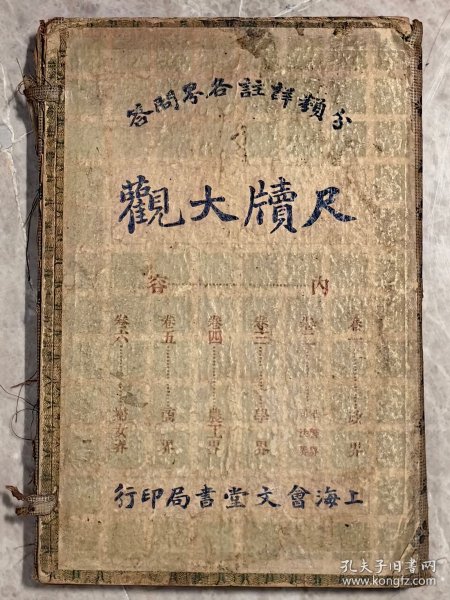 分類詳註各界問答
尺牘大觀
內容
卷一 政界
卷二 軍警界 司法界
卷三 學界
卷四 農工界
卷五 商界
卷六 婦女界
上海會文堂書局印行
孔夫子旧书网
www.kongfz.com